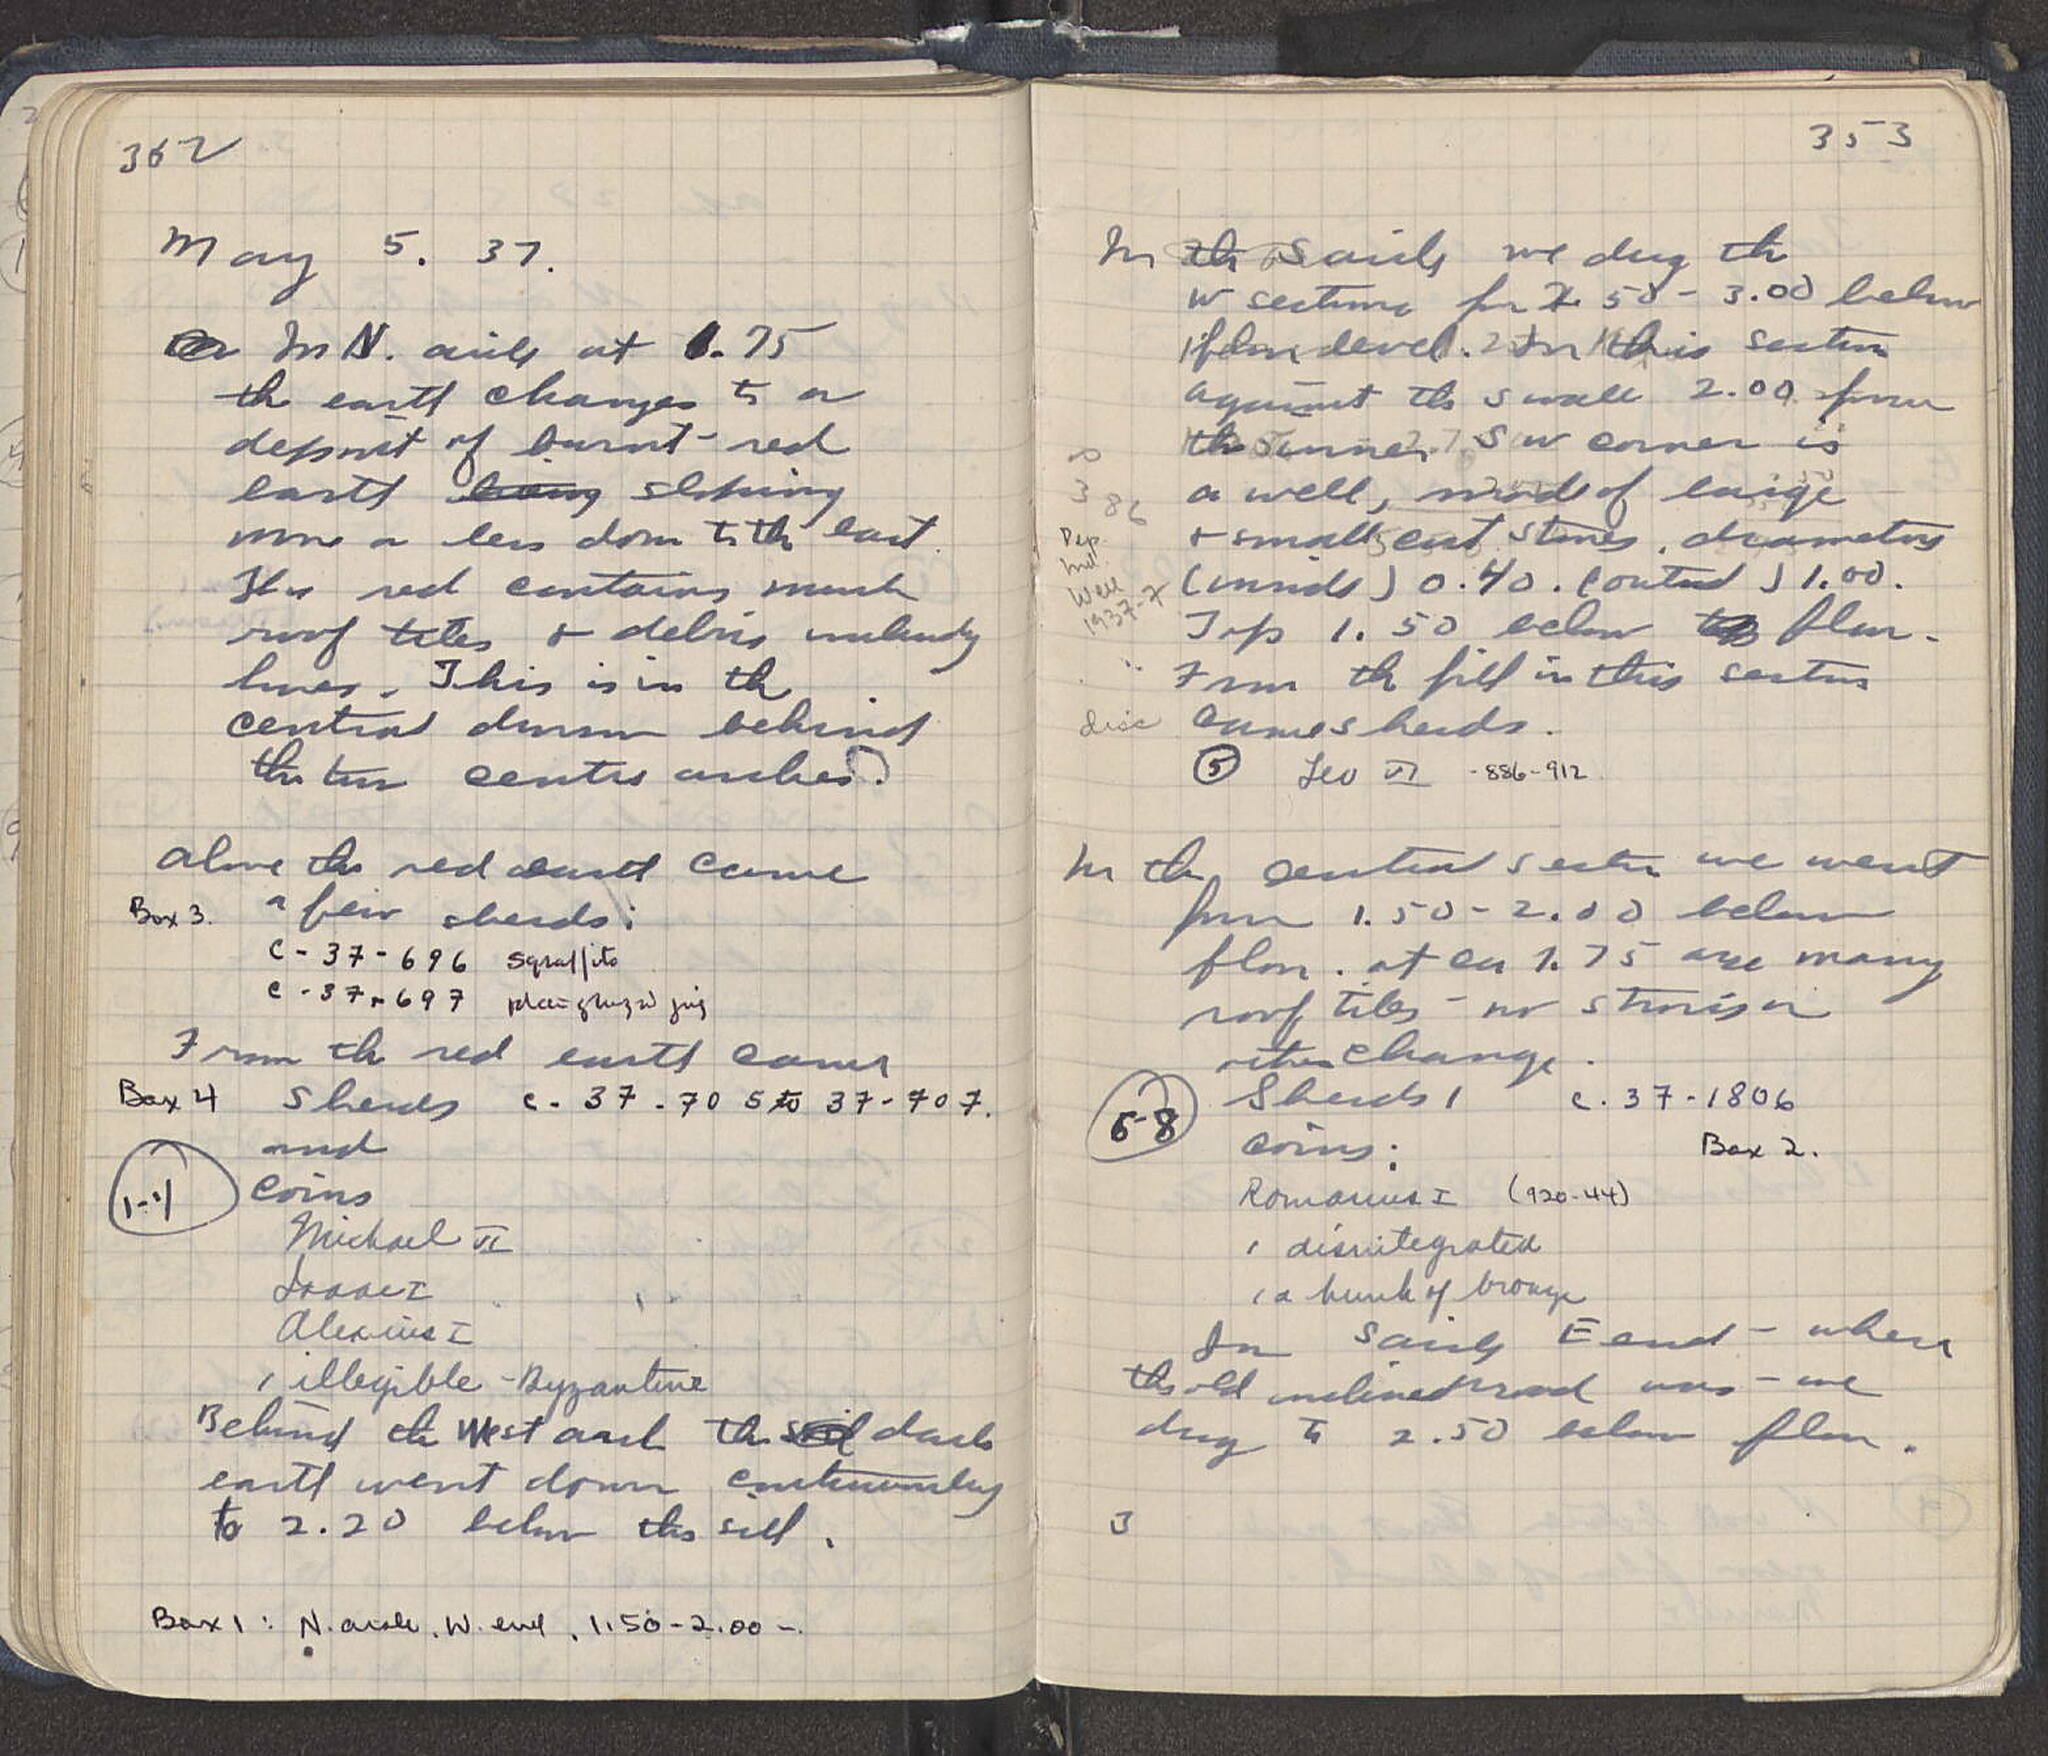 362
May 5. 37.
In N. aisle at 1.75
the earth changes to a
deposit of burnt-red
earth being sloping
more or less down to the east.
The red contains much
roof tiles & debris
lines. This is in the
central domain behind
the two centre arches.
Above the red earth came
Box 3. a few sherds:
C-37-696 sgraffito
C-37-697 jug
From the red earth came
Box 4 Sherds C-37-705 to 37-707.
and
1-4 coins
Michael VI
Isaac I
Alexius I
1 illegible - Byzantine
Behind the West arch the dark
earth went down continuously
to 2.20 below the sill.
Box 1: N. aisle. W. end. 1.50-2.00-.
353
In the S aisle we dug the
W sections from 50-3.00 below
floor level. In this section
against the S wall 2.00 from
the inner SW corner is
386
a well, made of large
& small cut stones, diameters
Dep.
Ind.
Well
1937-7
(inside) 0.40. (outside) 1.00.
Top 1.50 below floor.
From the fill in this section
disc came sherds.
5 Leo VI -886-912
In the central section we went
from 1.50-2.00 below
floor. at ca 1.75 are many
roof tiles - no stones or
other change.
Sherds 1 C-37-1806
6-8 coins: Box 2.
Romanus I (920-44)
1 disintegrated
1 a hunk of bronze
In S aisle E end - where
the old inclined road was - we
dug to 2.50 below floor.
3